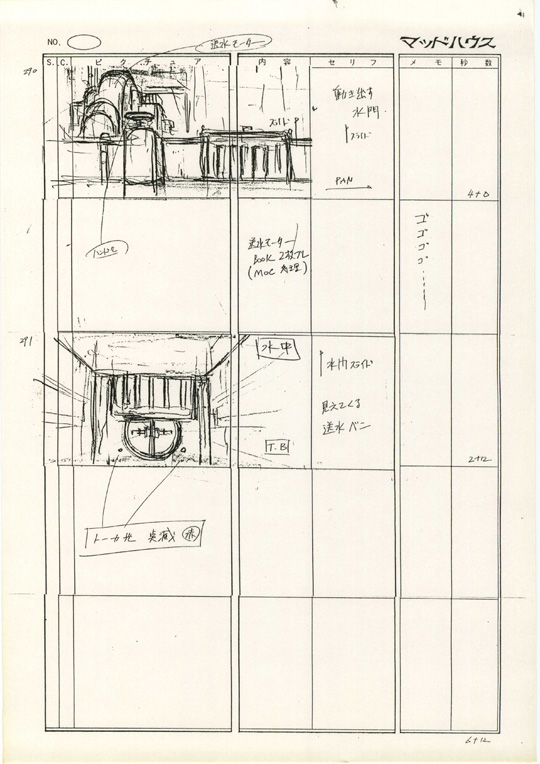 NO.
送水モーター
マッドハウス
S. C. ピクチュア 内容 セリフ メモ 秒数
290
スライド
動き出す
水門
スライド
PAN
4+0
ハンドル
送水モーター
BOOK 2枚ブレ
(MOC 処理)
ゴ
ゴ
ゴ
ゴ
291
水中
水門スライド
見えてくる
送水ペニ
T.B
2+12
トーカ光 点滅 赤
6+12